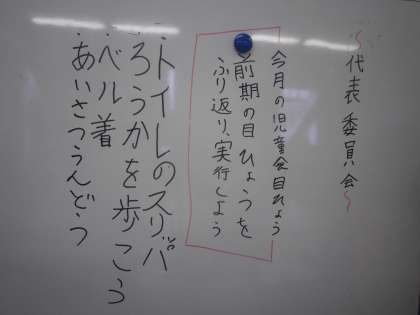 ~代表委員会~
今月の児童会目ひょう
前期の目ひょうを
ふり返り、実行しよう
・トイレのスリッパ
・ろうかを歩こう
・ベル着
・あいさつうんどう